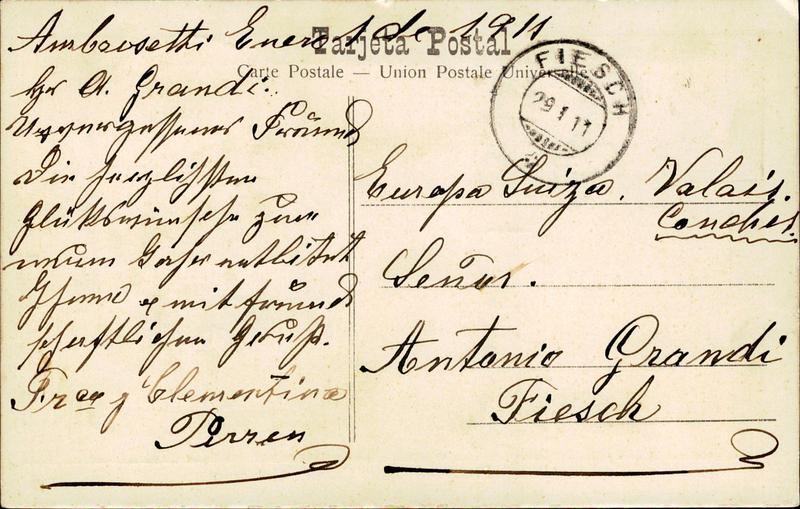 Ambrosetti Enero 1 de 1911
Tarjeta Postal
Carte Postale — Union Postale Universelle
FIESCH
29 1 11
Hr A. Grandi.
Unvergessener Fründ
Die herzlichsten
Glükswünsche zum
neuen Jahr entbitet
Ihnen mit fründ
schaftlichem Gruß.
Frco y Clementina
Perren
Europa Suiza. Valais.
Conches
Señor.
Antonio Grandi
Fiesch